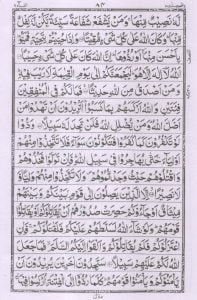 ٨٤
لَّهٗ نَصِيْبٌ مِّنْهَا ۚ وَمَنْ يَّشْفَعْ شَفَاعَةً سَيِّئَةً يَّكُنْ لَّهٗ كِفْلٌ
مِّنْهَا ؕ وَكَانَ اللّٰهُ عَلٰى كُلِّ شَىْءٍ مُّقِيْتًا ۝ وَاِذَا حُيِّيْتُمْ بِتَحِيَّةٍ فَحَيُّوْا
بِاَحْسَنَ مِنْهَاۤ اَوْ رُدُّوْهَا ؕ اِنَّ اللّٰهَ كَانَ عَلٰى كُلِّ شَىْءٍ حَسِيْبًا ۝
اَللّٰهُ لَاۤ اِلٰهَ اِلَّا هُوَ ؕ لَيَجْمَعَنَّكُمْ اِلٰى يَوْمِ الْقِيٰمَةِ لَا رَيْبَ فِيْهِ ؕ
وَمَنْ اَصْدَقُ مِنَ اللّٰهِ حَدِيْثًا ۝ فَمَا لَكُمْ فِى الْمُنٰفِقِيْنَ
فِئَتَيْنِ وَاللّٰهُ اَرْكَسَهُمْ بِمَا كَسَبُوْا ؕ اَتُرِيْدُوْنَ اَنْ تَهْدُوْا مَنْ
اَضَلَّ اللّٰهُ ؕ وَمَنْ يُّضْلِلِ اللّٰهُ فَلَنْ تَجِدَ لَهٗ سَبِيْلًا ۝ وَدُّوْا
لَوْ تَكْفُرُوْنَ كَمَا كَفَرُوْا فَتَكُوْنُوْنَ سَوَآءً فَلَا تَتَّخِذُوْا مِنْهُمْ
اَوْلِيَآءَ حَتّٰى يُهَاجِرُوْا فِىْ سَبِيْلِ اللّٰهِ ؕ فَاِنْ تَوَلَّوْا فَخُذُوْهُمْ وَ
اقْتُلُوْهُمْ حَيْثُ وَجَدْتُّمُوْهُمْ ۪ وَلَا تَتَّخِذُوْا مِنْهُمْ وَلِيًّا وَّ
لَا نَصِيْرًا ۝ اِلَّا الَّذِيْنَ يَصِلُوْنَ اِلٰى قَوْمٍۭ بَيْنَكُمْ وَبَيْنَهُمْ
مِّيْثَاقٌ اَوْ جَآءُوْكُمْ حَصِرَتْ صُدُوْرُهُمْ اَنْ يُّقَاتِلُوْكُمْ اَوْ يُقَاتِلُوْا
قَوْمَهُمْ ؕ وَلَوْ شَآءَ اللّٰهُ لَسَلَّطَهُمْ عَلَيْكُمْ فَلَقٰتَلُوْكُمْ ۚ فَاِنِ
اعْتَزَلُوْكُمْ فَلَمْ يُقَاتِلُوْكُمْ وَاَلْقَوْا اِلَيْكُمُ السَّلَمَ ۙ فَمَا جَعَلَ
اللّٰهُ لَكُمْ عَلَيْهِمْ سَبِيْلًا ۝ سَتَجِدُوْنَ اٰخَرِيْنَ يُرِيْدُوْنَ اَنْ
يَّاْمَنُوْكُمْ وَيَاْمَنُوْا قَوْمَهُمْ ؕ كُلَّمَا رُدُّوْۤا اِلَى الْفِتْنَةِ اُرْكِسُوْا فِيْهَا ۚ